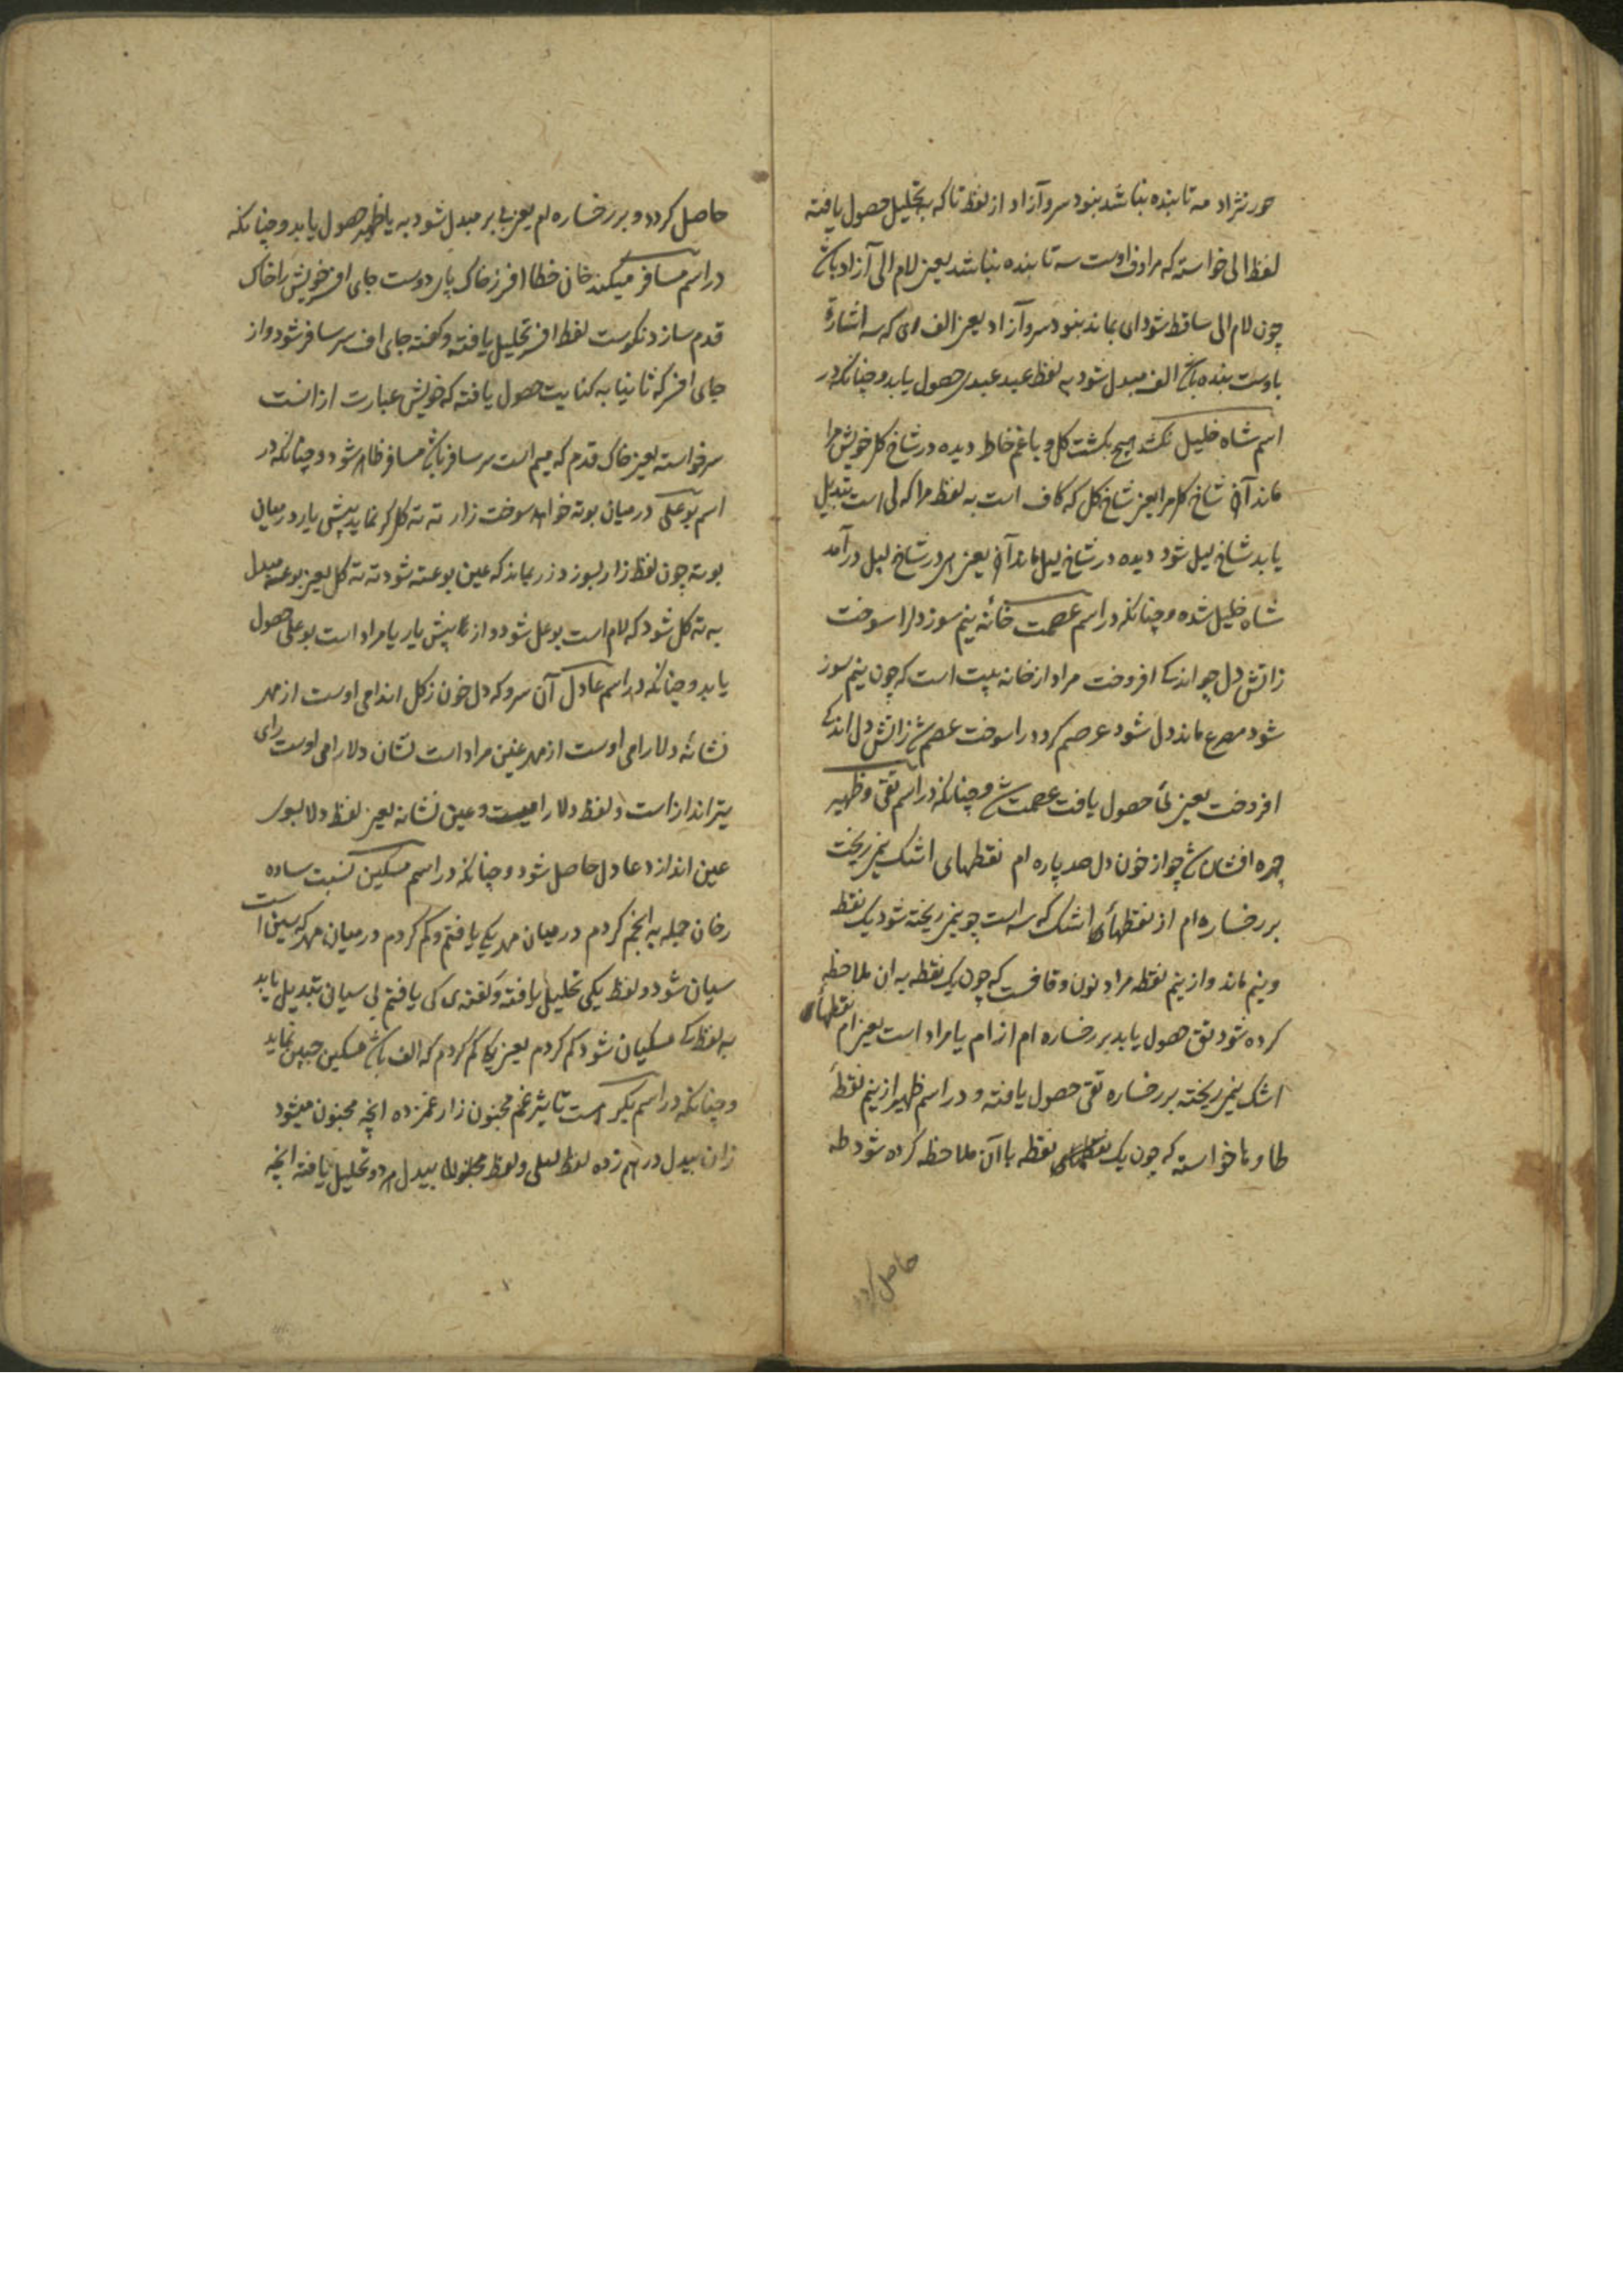 حور نژاد مه تا بنده نباشد بنود سرو آزاد از لفظ تا که بتحلیل حصول یافته
لفظ الی خواسته که مرادف اوست سه تا بنده نباشد یعنی لام الی آزاد باش
چون لام الی ساقط شود ای بماند بنود سرو آزاد یعنی الف ای که سه اشارة
باوست بنده باش الف مبدل شود به لفظ عبد عبدی حصول یابد و چنانکه در
اسم شاه خلیل نکشد هیچ بکشت کل و باغم خاطر دیده در شاخ کل خویش مرا
ماند آن شاخ کل مرا یعنی شاخ کل که کاف است به لفظ مرا که لی است تبدیل
یابد شاخ لیل شود دیده در شاخ لیل ماند آن یعنی در شاخ لیل درآمد
شاه خلیل شده و چنانکه در اسم عصمت خانه نیم سوز دل را سوخت
زاتش دل چو اندکے افروخت مراد از خانه بیت است که چون نیم سوز
شود مصرع ماند دل شود عرصم کردد را سوخت عصم زاتش دل اندکے
افروخت یعنی تا حصول یافت عصمت و چنانکه در اسم تقی و ظهیر
چهره افشان چو از خون دل صد پاره ام نقطهای اشک نیم ریخت
بر رخساره ام از نقطهای اشک که سه است چو نیم ریخته شود یک نقطه
و نیم ماند و از نیم نقطه مراد نون و قافست که چون یک نقطه به ان ملاحظه
کرده شود تق حصول یابد بر رخساره ام از ام یا مراد است یعنی ام نقطهای
اشک نیم ریخته بر رخساره تقی حصول یافته و در اسم ظهیر از نیم نقطه
طا و ها خواسته که چون یک نقطه با آن ملاحظه کرده شود طه
حاصل کردد
حاصل کردد و بر رخساره ام یعنی بر مبدل شود به یا ظهیر حصول یابد و چنانکه
در اسم مسافر میکند خان خطا افسر ز خاک پای دوست جای افسر خویش را خاک
قدم سازد نکوست لفظ افسر تحلیل یافته و کفته جای اف سر سافر شود و از
جای افسر که ثانیا به کنایت حصول یافته که خویش عبارت ازانست
سر خواسته یعنی خاک قدم که میم است سر سافر باش مسافر ظاهر شود و چنانکه در
اسم بوعلی در میان بوته خواهد سوخت زار ته ته کل کر نماید پیش یار در میان
بوته چون لفظ زار بسوزد زر بماند که عین بوعته شود ته ته کل یعنی بوعته مبدل
به ته کل شود که لام است بوعل شود و از پیش یار یا مراد است بوعلی حصول
یابد و چنانکه در اسم عادل آن سرو که دل خون ز کل اندامی اوست از مهر
نشانه دلارامی اوست از مهر عین مراد است نشان دلارامی اوست رای
تیر انداز است و لفظ دلارا میست و عین نشانه یعنی لفظ دلا بسوی
عین اندازد عادل حاصل شود و چنانکه در اسم مسکین نسبت ساده
رخان جمله به انجم کردم در میان مه یکی یافتم و کم کردم در میان مه که سین است
سیان شود و لفظ یکی تحلیل یافته و کفته ی کی یافتم لی سیان تبدیل یابد
به لفظ کے مسکیان شود کم کردم یعنی یکا کم کردم که الف باش مسکین نماید
و چنانکه در اسم بکر است تاثیر غم مجنون زار غمزده انچه مجنون میشود
زان بیدل در هم زده لفظ لعلی و لفظ مجنون بیدل هر دو تحلیل یافته انچه